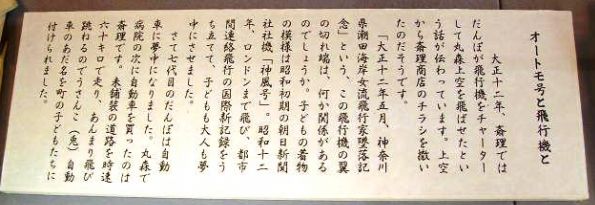 オートモ号と飛行機と
大正十二年、斎理では
だんぽが飛行機をチャーター
して丸森上空を飛ばせたとい
う話が伝わっています。上空
から斎理商店のチラシを撒い
たのだそうです。
「大正十二年五月、神奈川
県潮田海岸女流飛行家墜落記
念」という、この飛行機の翼
の切れ端は、何か関係がある
のでしょうか。子どもの着物
の模様は昭和初期の朝日新聞
社社機「神風号」。昭和十二
年、ロンドンまで飛び、都市
間連絡飛行の国際新記録をう
ち立てて、子どもも大人も夢
中にさせました。
さて七代目のだんぽは自動
車に夢中になりました。丸森で
病院の次に自動車を買ったのは
斎理です。未舗装の道路を時速
六十キロで走り、あんまり飛び
跳ねるのでうさんこ(兎)自動
車のあだ名を町の子どもたちに
付けられました。